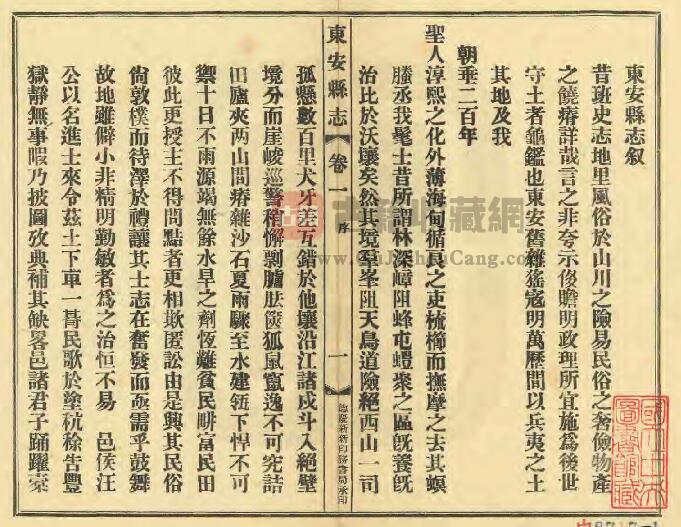 東安縣志叙
昔班史志地里風俗於山川之險易民俗之奢儉物產
之饒瘠詳哉言之非夸示後瞻明政理所宜施為後世
守土者龜鑑也東安舊雜猺寇明萬歷間以兵夷之土
其地及我
朝垂二百年
聖人淳熙之化外薄海甸循良之吏梳櫛而撫摩之去其螟
螣丞我髦士昔所謂林深嶂阻蜂屯螘聚之區旣養旣
治比於沃壤矣然其境羣峯阻天鳥道險絕西山一司
東安縣志
卷一
序
一
德慶新新印務書局承印
孤懸數百里犬牙差互錯於他壤沿江諸戍斗入絕壁
境分而崖峻巡警稍懈剽臚胠篋狐鼠竄逸不可究詰
田廬夾兩山間瘠雜沙石夏雨驟至水建瓴下悍不可
禦十日不雨源竭無餘水旱之劑恆難貧民畊富民田
彼此更授主不得問黠者更相欺匿訟由是興其民俗
尙敦樸而待澤於禮讓其士志在奮發而亟需乎鼓舞
故地雖僻小非精明勤敏者為之治恒不易　邑侯汪
公以名進士來令茲土下車一朞民歌於塗杭稌告豐
獄靜無事暇乃披圖攷典補其缺畧邑諸君子踊躍槖
古籍收藏網
www.GuJiShuCang.com